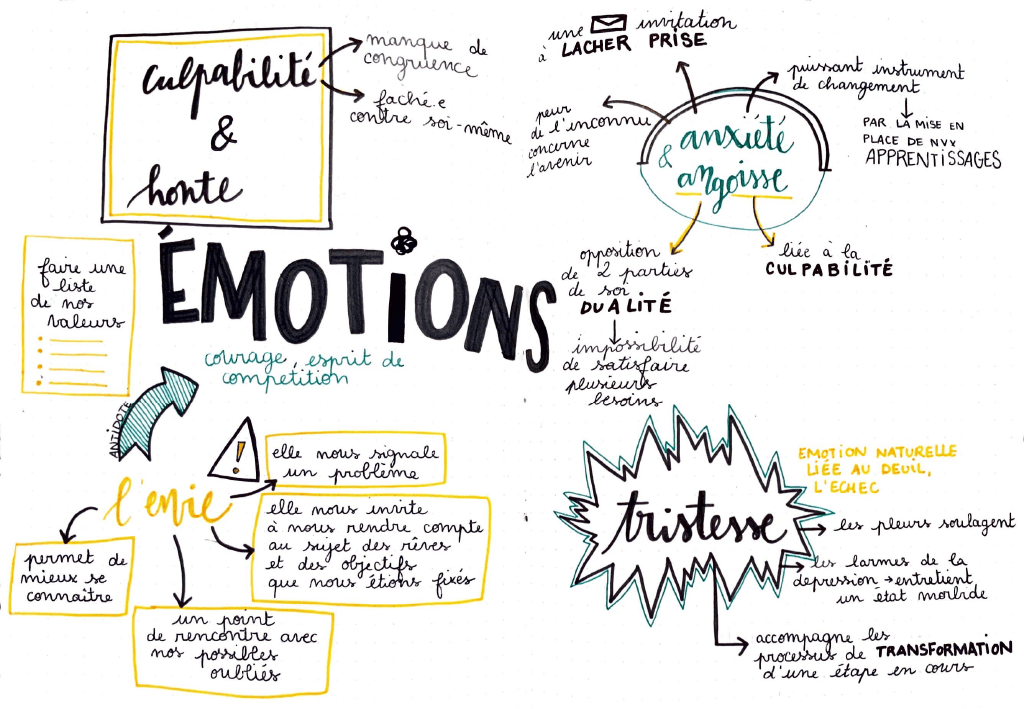 culpabilité
&
honte
manque de
congruence
faché·e
contre soi-même
une invitation
à LACHER PRISE
puissant instrument
de changement
PAR LA MISE EN
PLACE DE NVX
APPRENTISSAGES
peur
de l'inconnu
concerne
l'avenir
anxiété
& angoisse
opposition
de 2 parties
de soi
DUALITÉ
impossibilité
de satisfaire
plusieurs
besoins
liée à la
CULPABILITÉ
ÉMOTIONS
faire une
liste
de nos
valeurs
courage, esprit de
competition
ANTIDOTE
!
l'envie
elle nous signale
un problème
elle nous invite
à nous rendre compte
au sujet des rêves
et des objectifs
que nous étions fixés
permet de
mieux se
connaître
un point
de rencontre avec
nos possibles
oubliés
tristesse
EMOTION NATURELLE
LIÉE AU DEUIL,
L'ECHEC
les pleurs soulagent
les larmes de la
depression → entretient
un état morbide
accompagne les
processus de TRANSFORMATION
d'une étape en cours